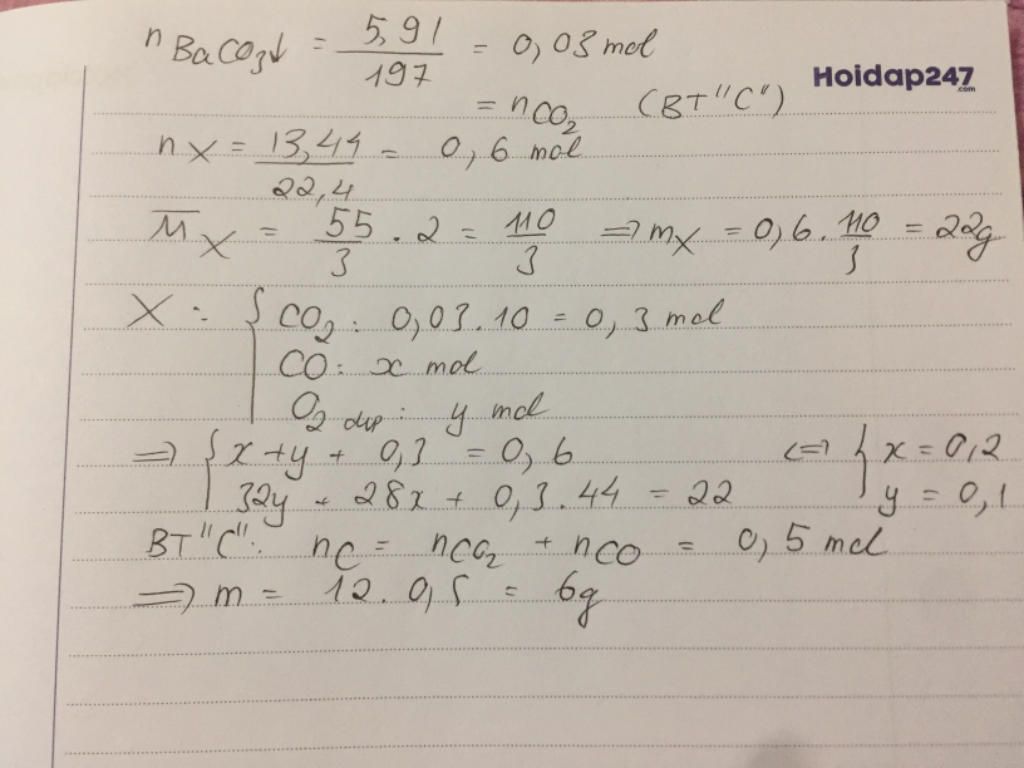 n BaCO3↓ = 5,91/197 = 0,03 mol
Hoidap247
.com
= nCO2 (BT"C")
nX = 13,44/22,4 = 0,6 mol
M̅X = 55/3 . 2 = 110/3 => mX = 0,6 . 110/3 = 22g
X : { CO2 : 0,03.10 = 0,3 mol
CO : x mol
O2 dư : y mol
=> { x + y + 0,3 = 0,6 <=> { x = 0,2
32y + 28x + 0,3.44 = 22 y = 0,1
BT"C": nC = nCO2 + nCO = 0,5 mol
=> m = 12.0,5 = 6g